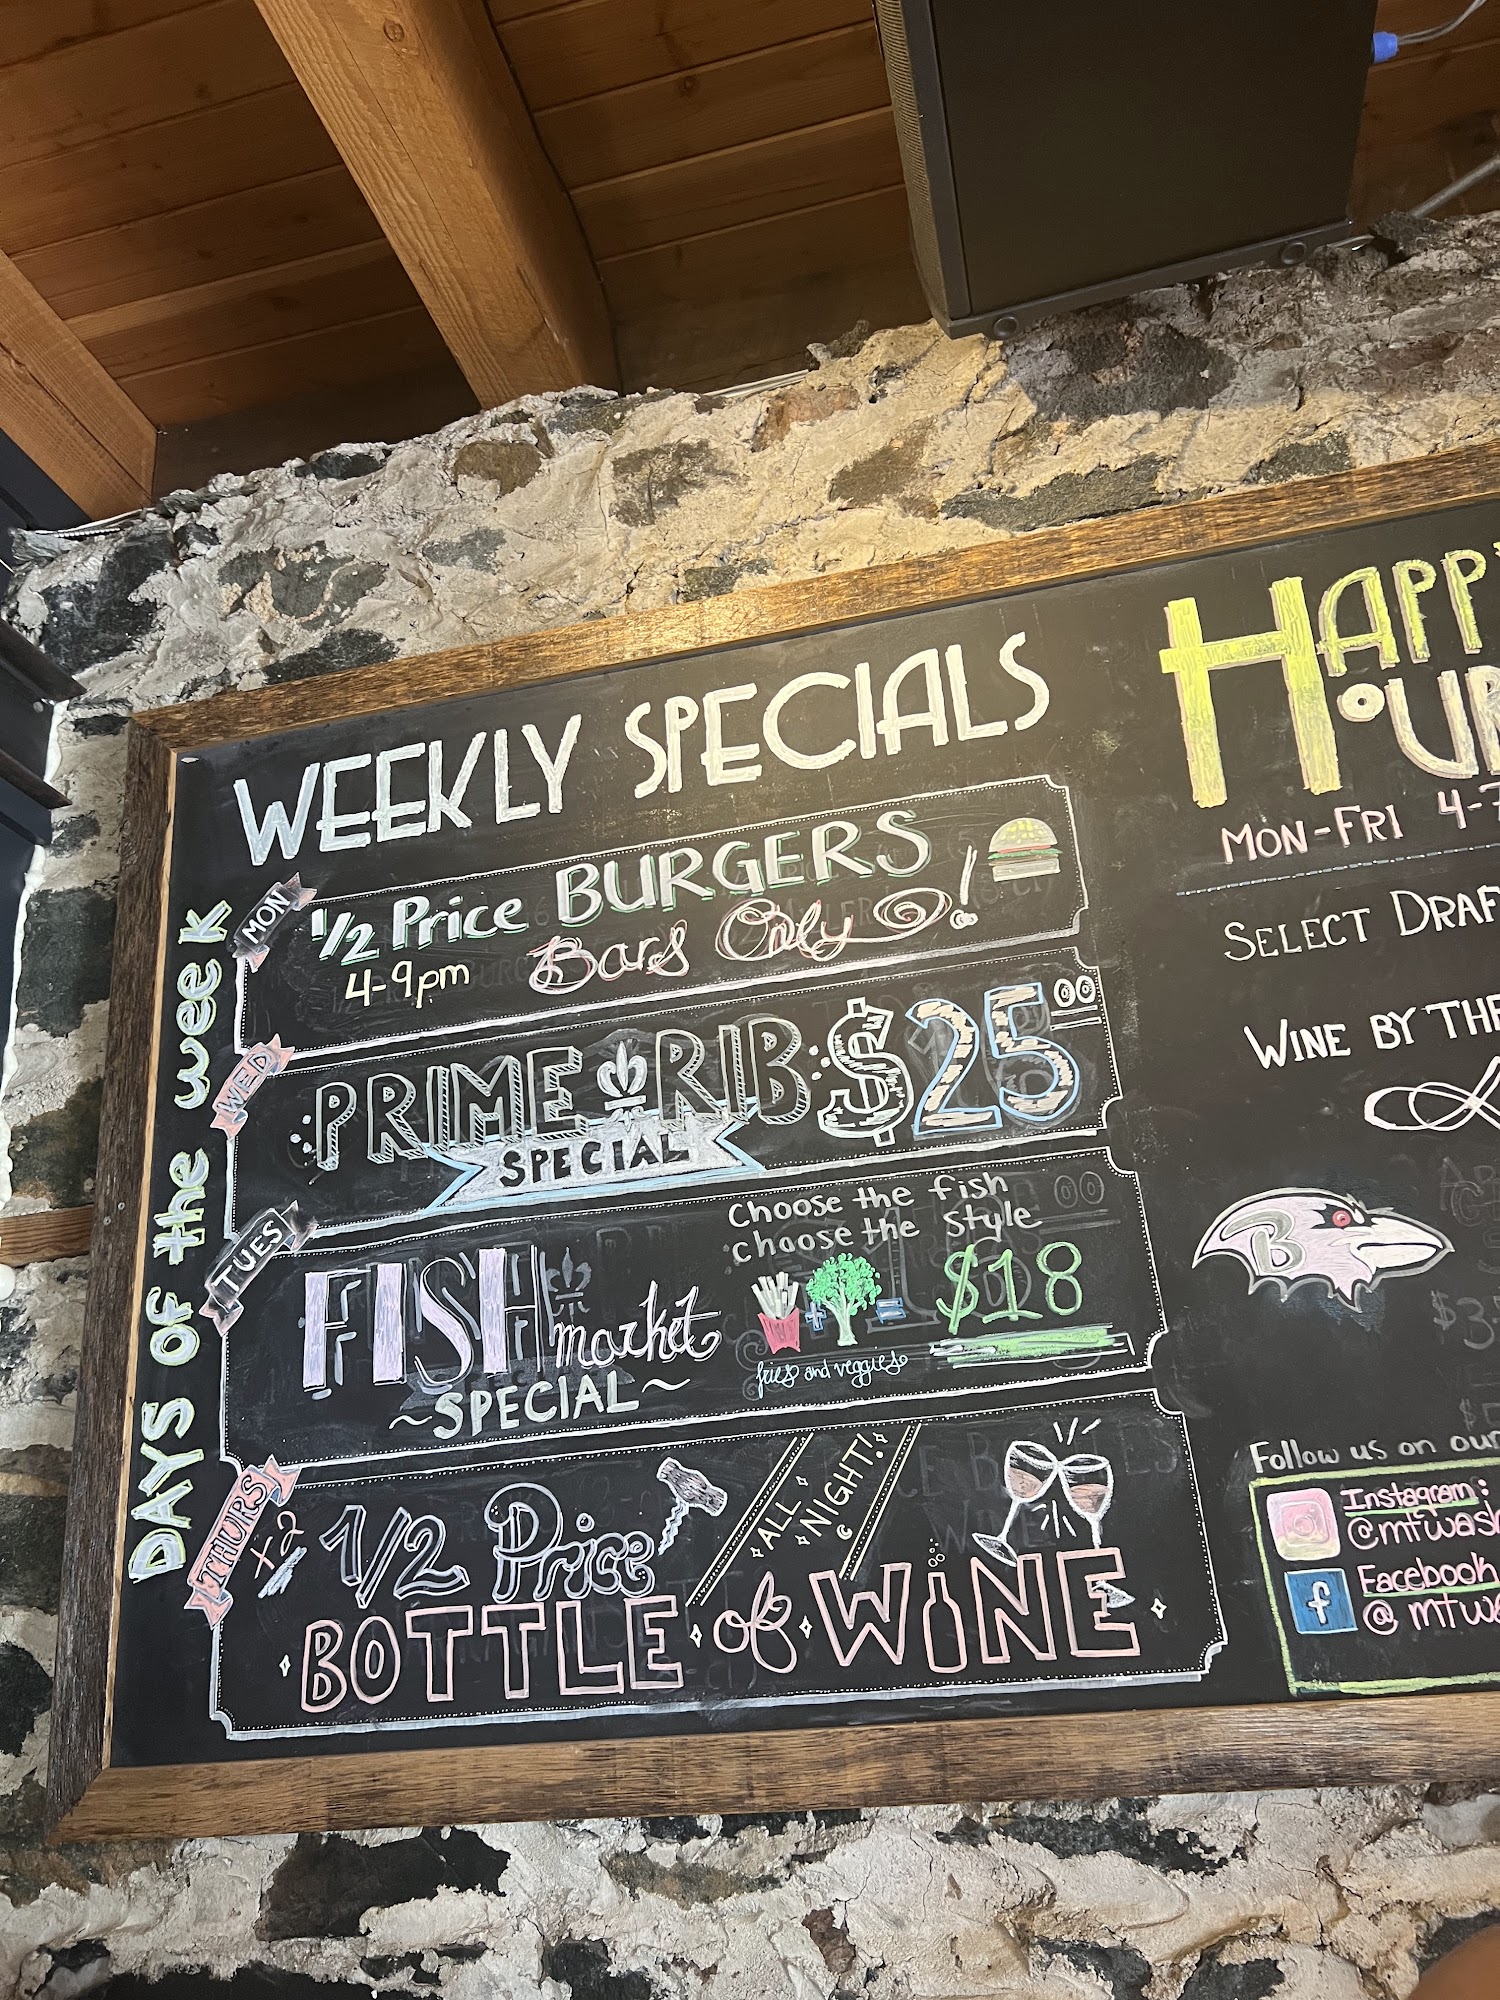 WEEKLY SPECIALS
DAYS OF the week
MON
1/2 Price BURGERS
4-9pm Bars Only!
WED
PRIME RIB $25.00
SPECIAL
TUES
Choose the fish
choose the style
FISH market
~SPECIAL~
$18
fries and veggies
THURS
1/2 Price
ALL NIGHT!
BOTTLE of WINE
HAPPY
HOUR
MON-FRI 4-7
SELECT DRAF
WINE BY THE
B
Follow us on our
Instagram:
@mtwash
Facebook
@mtwa
f